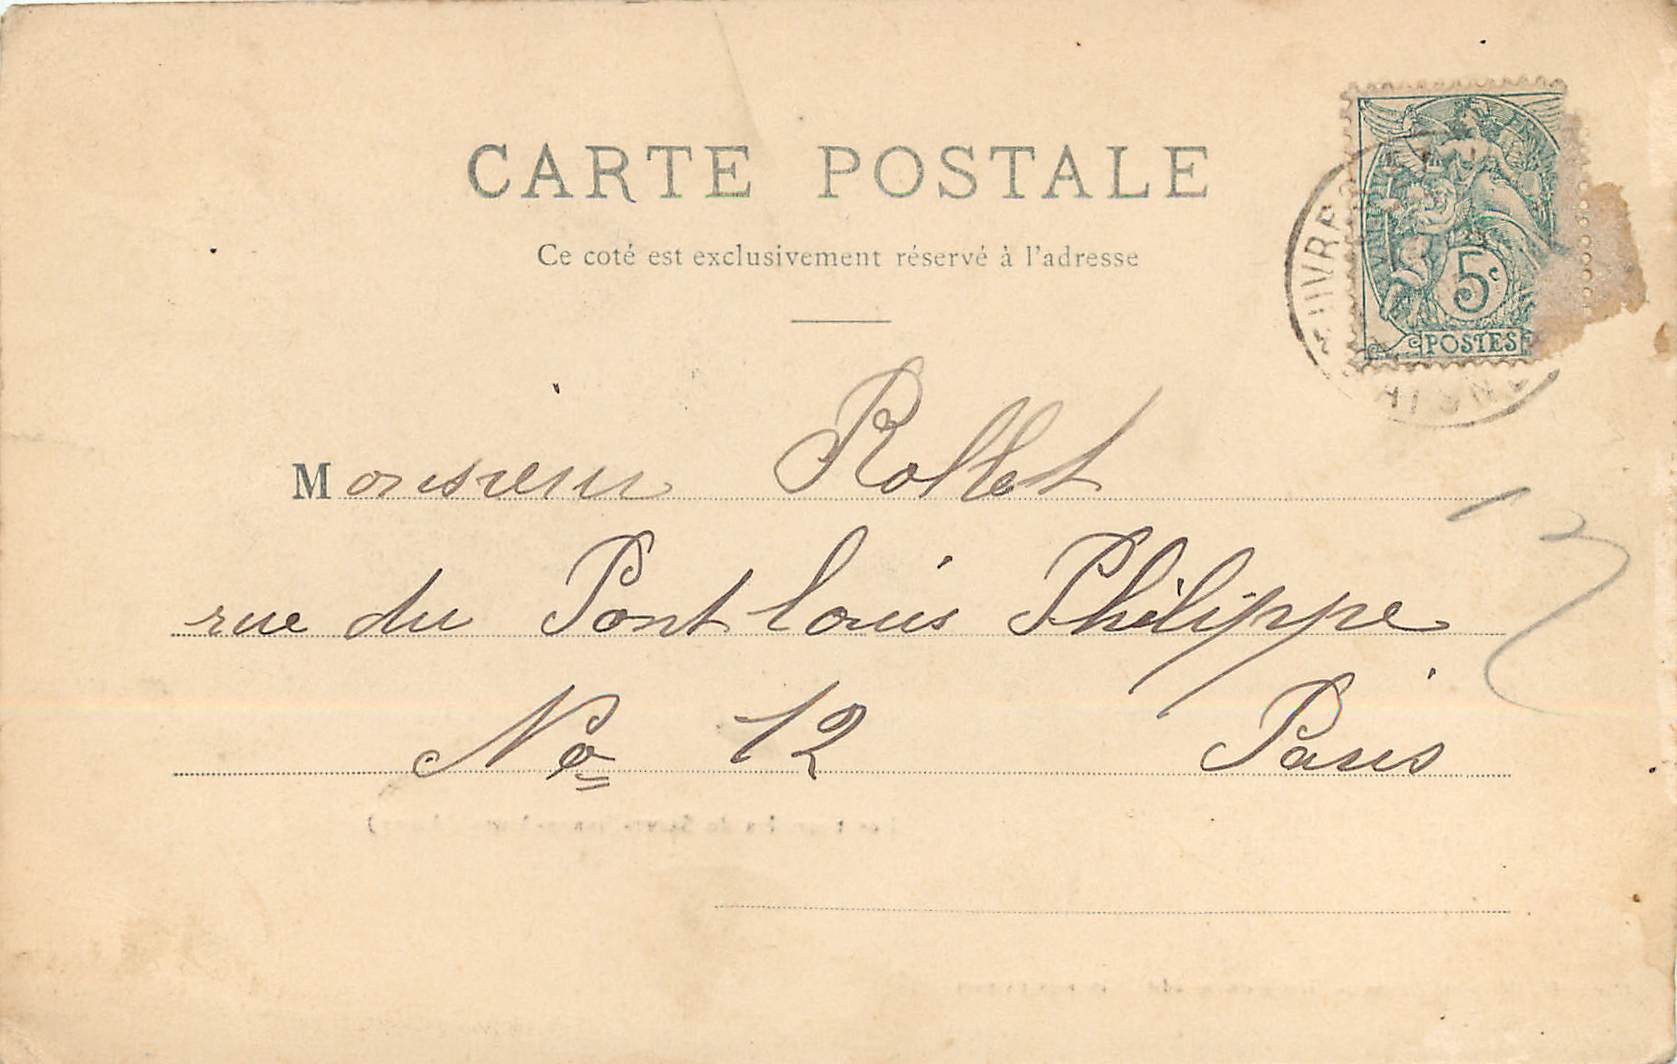 CARTE POSTALE
Ce coté est exclusivement réservé à l'adresse
5c
POSTES
Monsieur Rollet
rue du Pont Louis Philippe
No 12 Paris